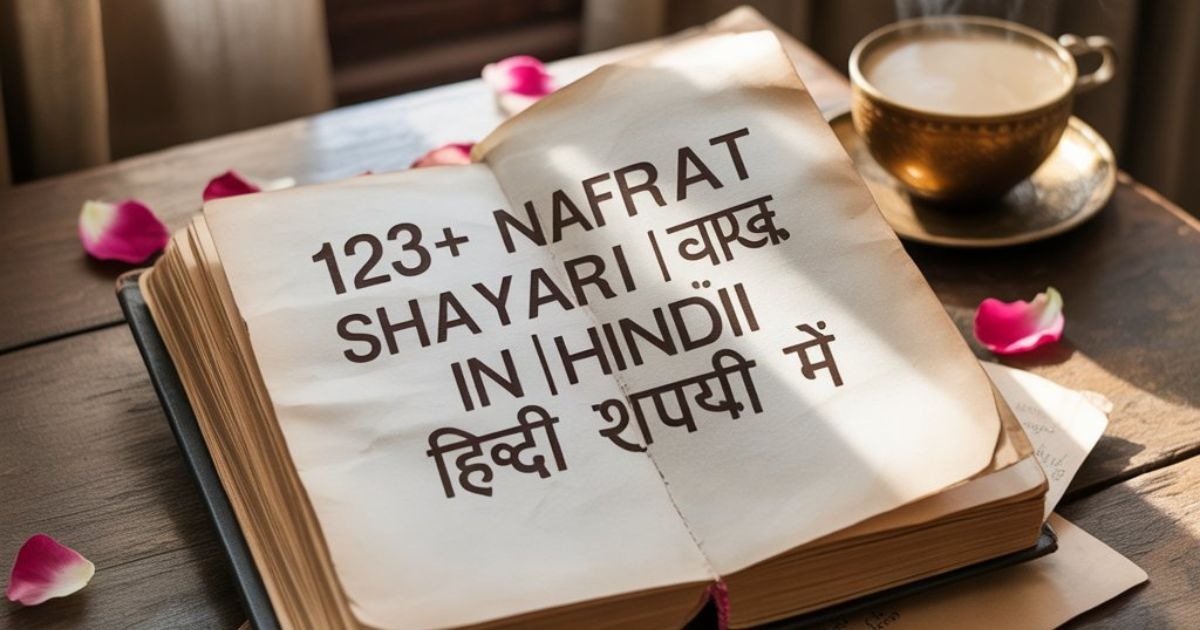 123+ NAFRAT
SHAYARI |
IN | HINDÏI
हिन्दी शपयी में